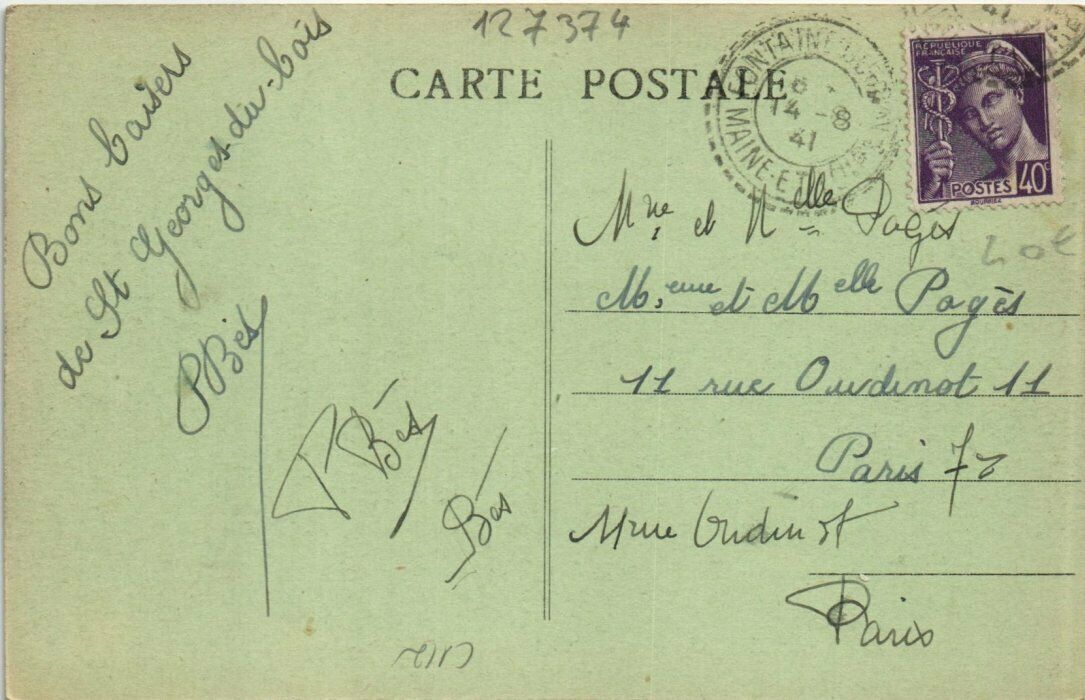 127374
CARTE POSTALE
MAINE-ET-
14 -8
41
RÉPUBLIQUE
FRANÇAISE
POSTES 40c
Bons baisers
de St Georges-du-bois
PBés
PBés
Bés
Mme et Melle Pagès
Meme et Melle Pagès
11 rue Oudinot 11
Paris 7e
Oudinot
Paris